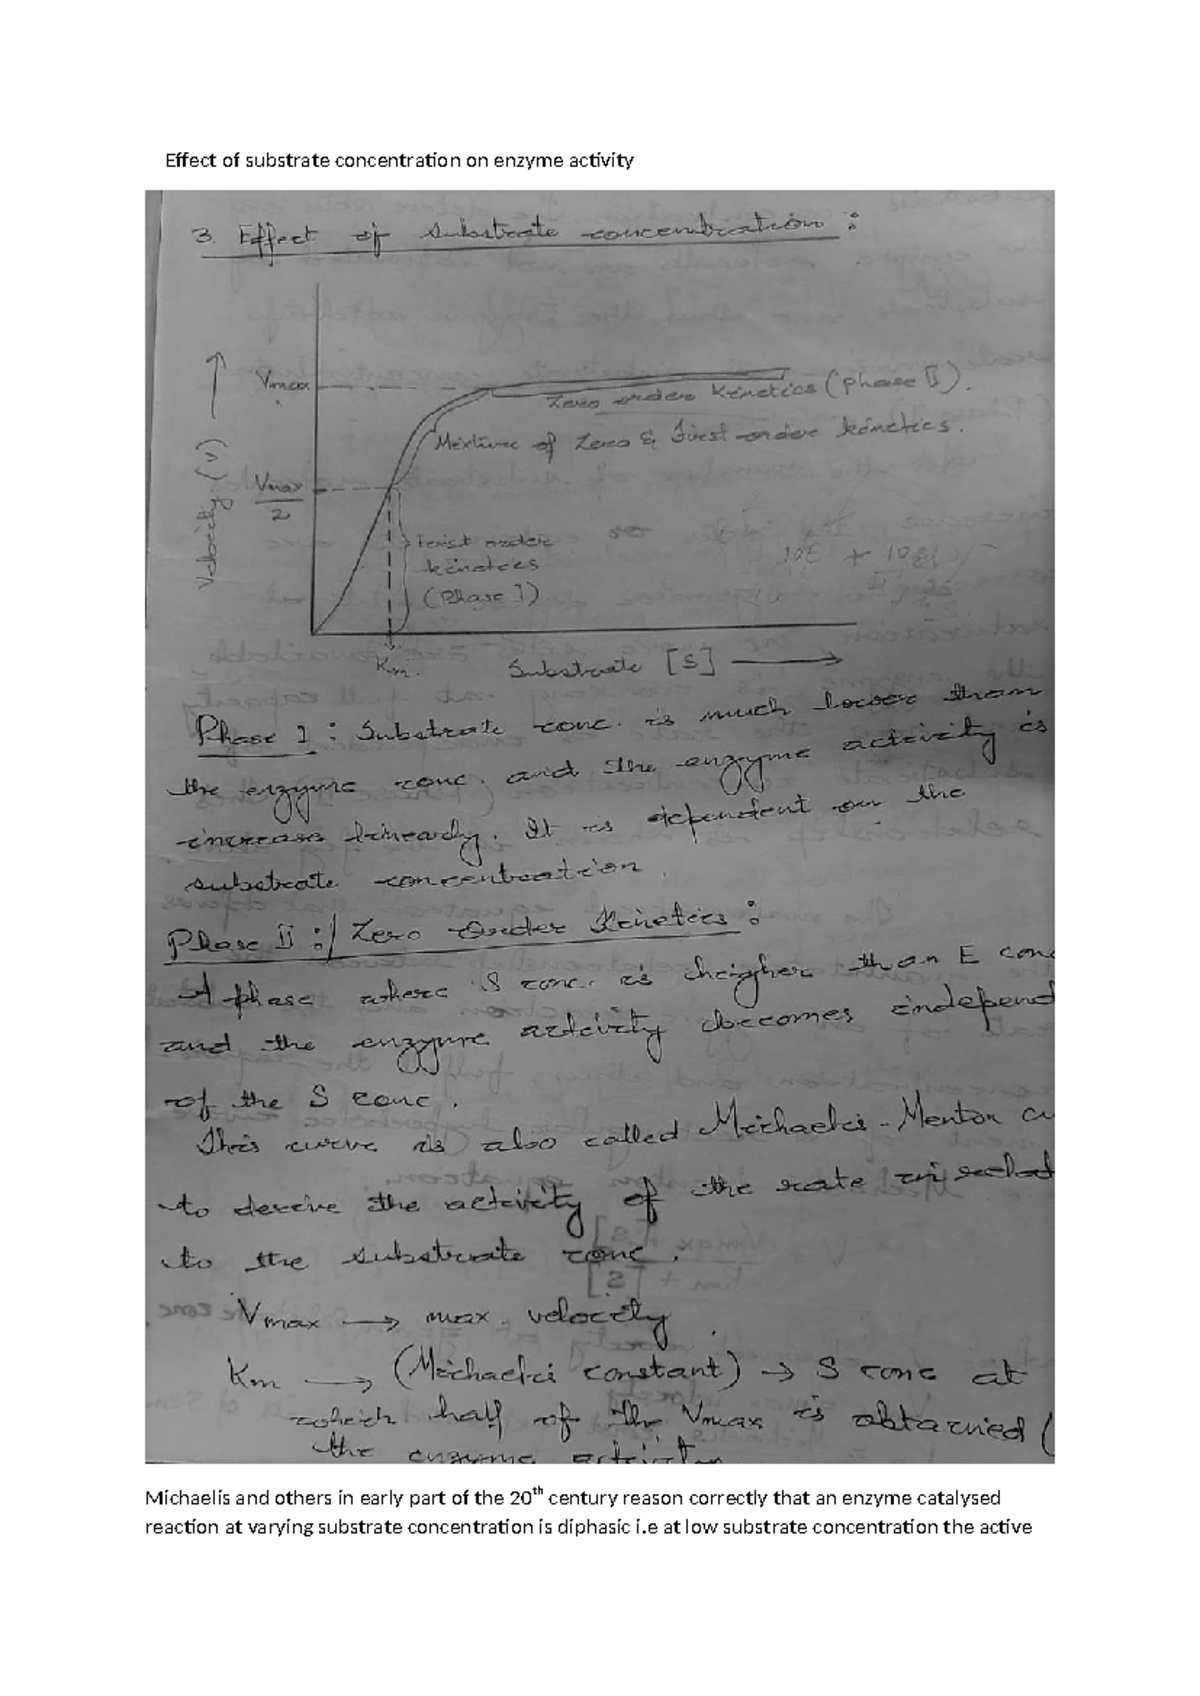 Effect of substrate concentration on enzyme activity
3. Effect of Substrate concentration :
Vmax
Zero order Kinetics (phase II).
Mixture of Zero & First order kinetics.
Velocity (V)
Vmax
2
First order
kinetics
(Phase I)
Km.
Substrate [S]
Phase I : Substrate conc. is much lower than
the enzyme conc. and the enzyme activity is
increase linearly. It is dependent on the
substrate concentration.
Phase II :/ Zero Order Kinetics :
A phase where S conc. is heigher than E conc
and the enzyme activity becomes independ
of the S conc.
This curve is also called Michaelis-Menton cu
to derive the activity of the rate in relat
to the substrate conc.
Vmax → max. velocity.
Km → (Michaelis constant) → S conc at
which half of the Vmax is obtained (
the enzyme activity
Michaelis and others in early part of the 20th century reason correctly that an enzyme catalysed
reaction at varying substrate concentration is diphasic i.e at low substrate concentration the active